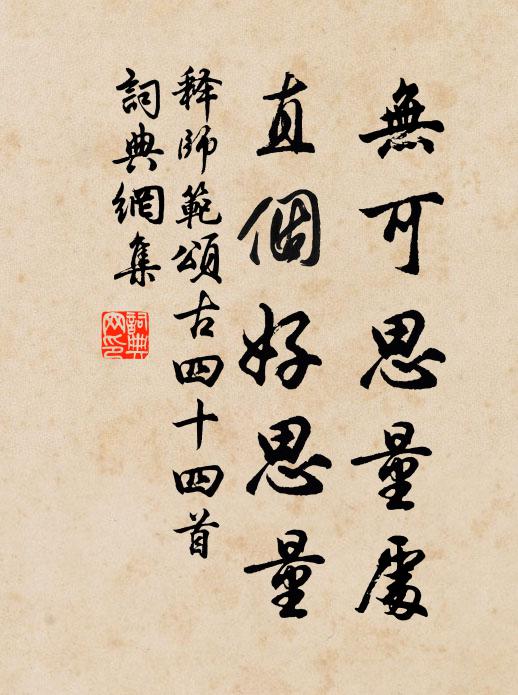 無可思量處
直個好思量
释師範頌古四十四首
詞典網集
詞典网印